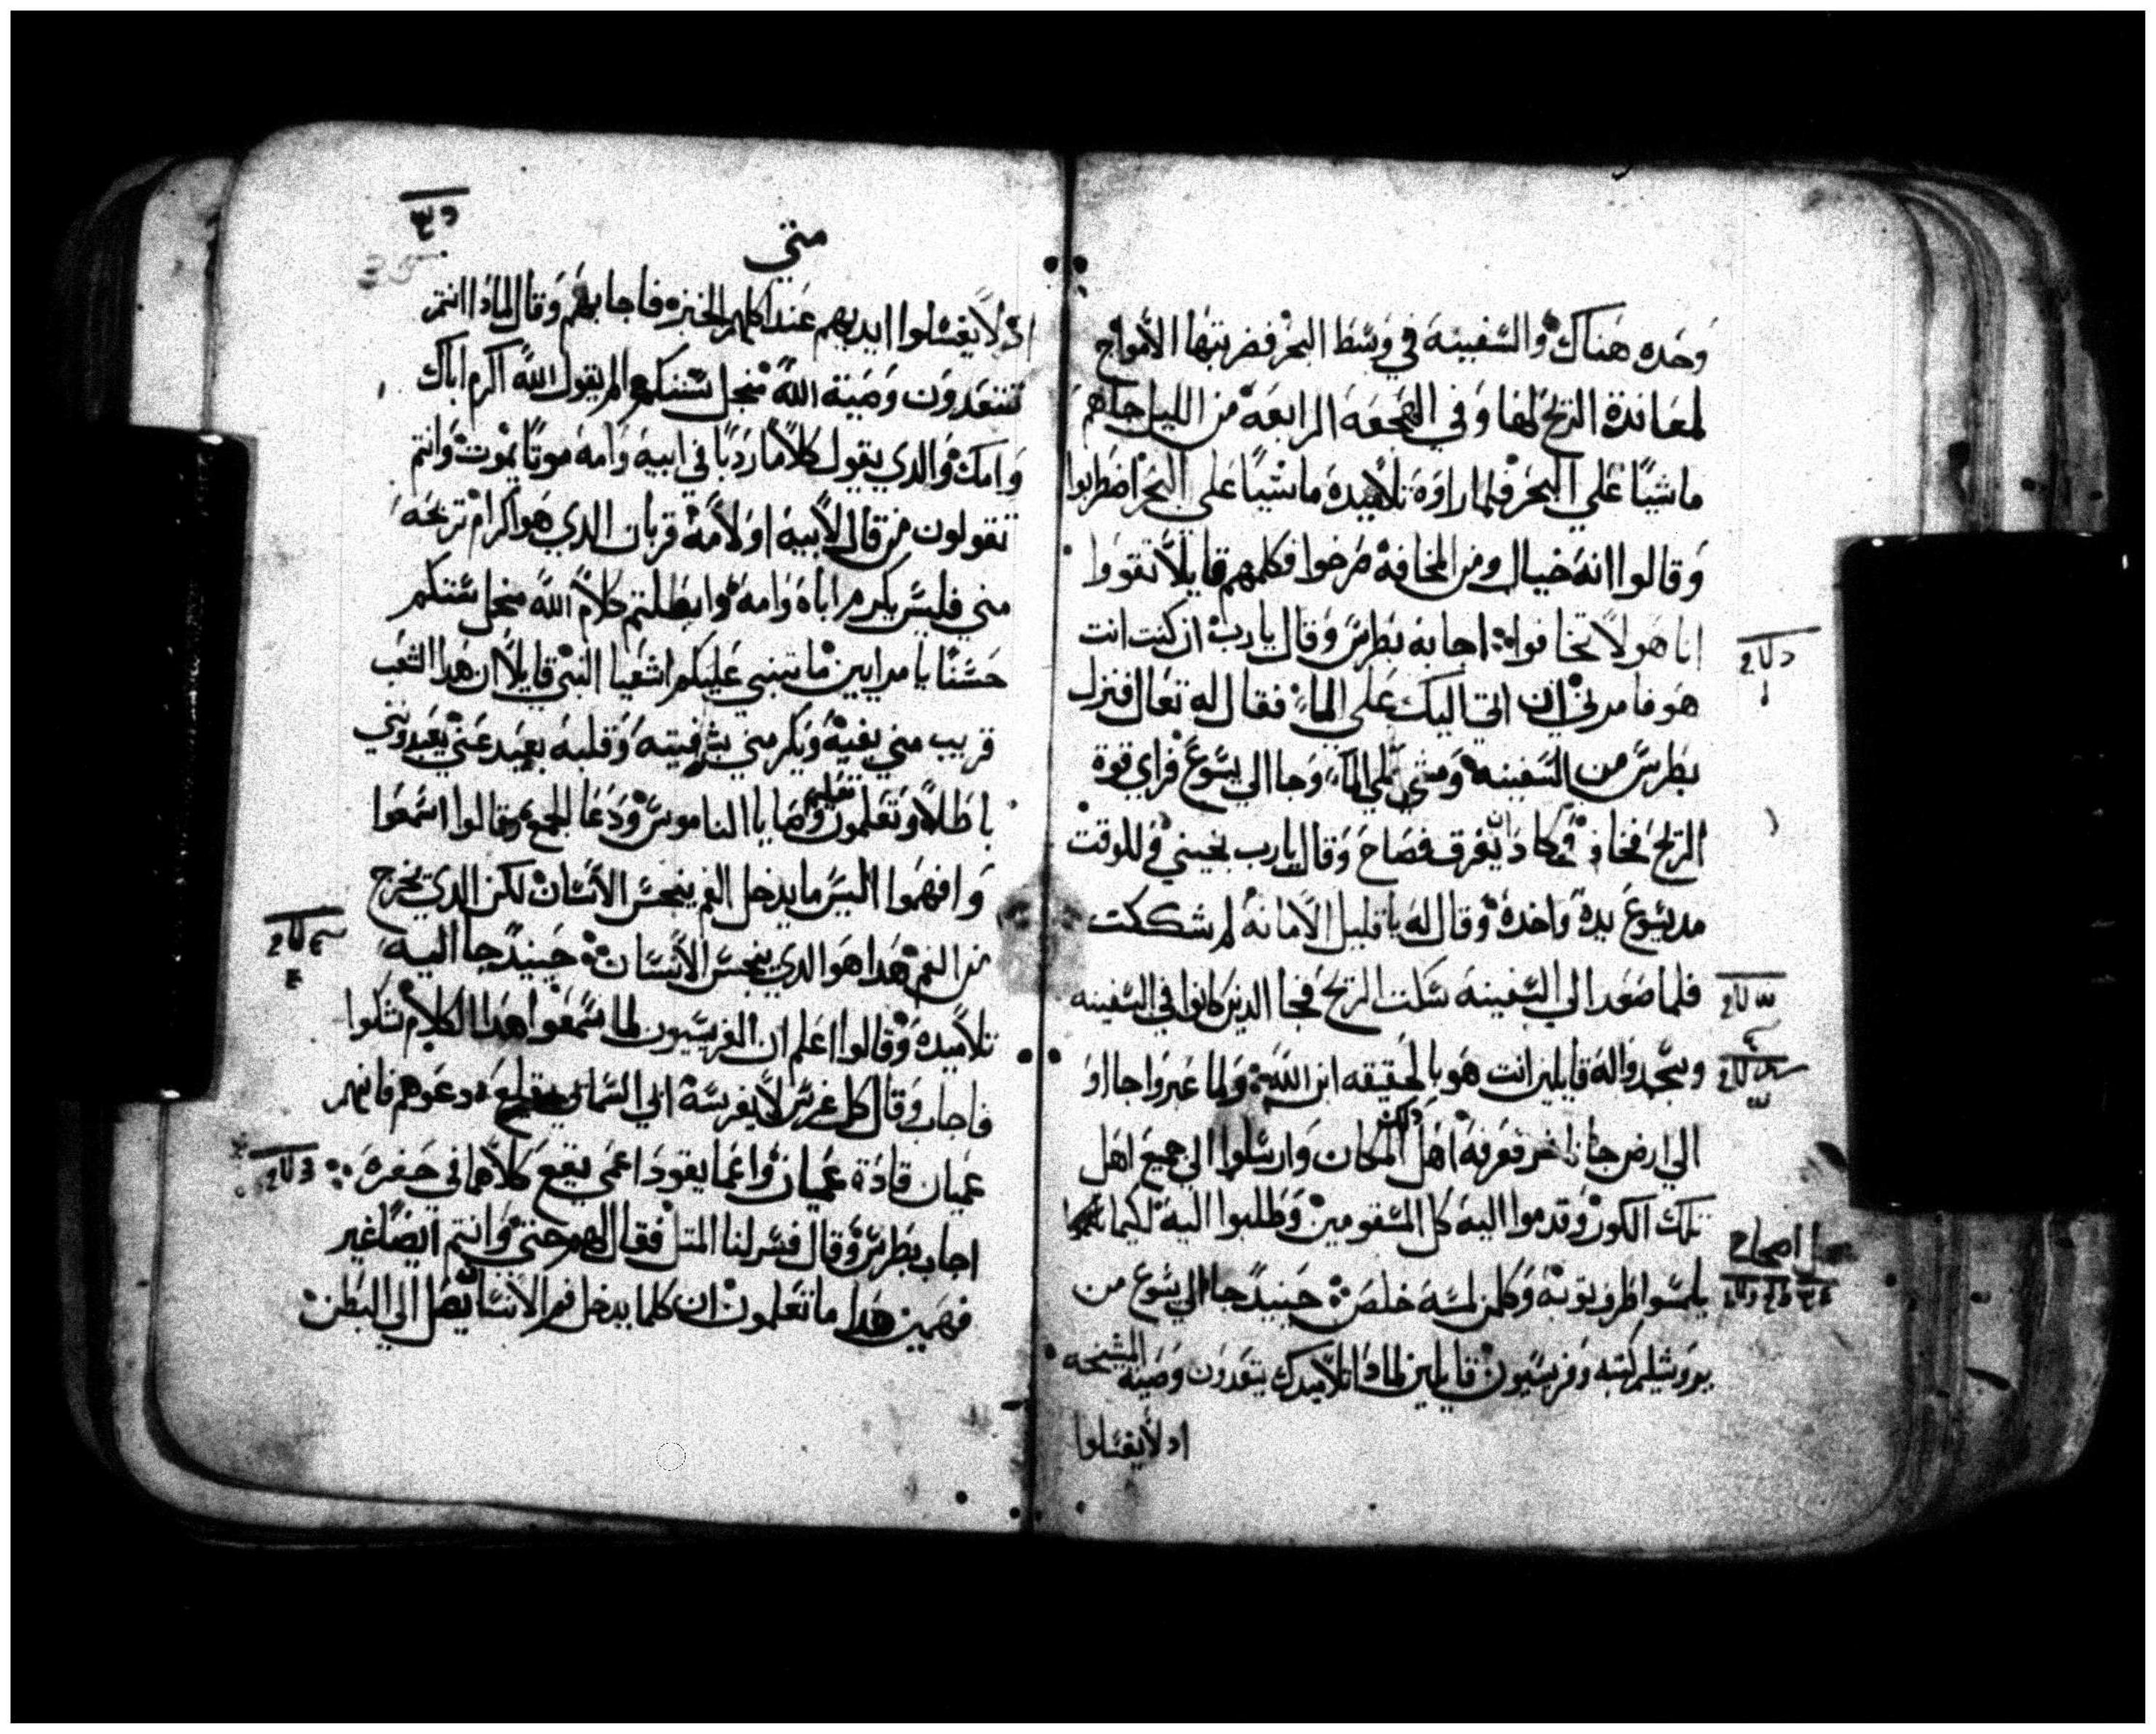 وحده هناك والسفينه في وسط البحر فضربتها الامواج
لمعاندة الريح لها وفي الهجعه الرابعه من الليل جاهم
ماشيًا علي البحر فلما راوه تلاميده ماشيًا علي البحر اضطربوا
وقالوا انه خيال ومن المخافه صرخوا فكلمهم قايلاً تقووا
انا هو لا تخافوا اجابه بطرس وقال يارب ان كنت انت
هو فامرني ان اتي اليك علي الما فقال له تعال فنزل
بطرس من السفينه ومشي علي الما وجا الي يسوع فراي قوة
الريح فخاف وكاد ان يغرق فصاح وقال يارب نجيني فللوقت
مد يسوع يده واخده وقال له يا قليل الامانه لم شككت
فلما صعد الي السفينه سكت الريح فجا الدين كانوا في السفينه
وسجدوا له قايلين انت هو بالحقيقه ابن الله ولما عبروا جااو
الي ارض جاناشر فعرفه اهل دلك المكان وارسلوا الي جميع اهل
تلك الكور وقدموا اليه كل المسقومين وطلبوا اليه لكيما
يلمسوا طرف توبه وكلمن لمسه خلص حينيدٍ جا الي يسوع من
يروشليم كتبه وفريسيون قايلين لمادا تلاميدك يتعدون وصية المشيخه
اد لا يغسلوا
متي
اد لا يغسلوا ايديهم عند اكلهم الخبز فاجابهم وقال لمادا انتم
تتعدون وصية الله منجل سنتكم الم يقول الله اكرم اباك
وامك والدي يقول كلامًا رديًا في ابيه وامه موتًا يموت وانتم
تقولون من قال لابيه او لامه قربان الدي هو اكرام تربحه
مني فليس يكرم اباه وامه وابطلتم كلام الله منجل سنتكم
حسنًا يا مرايين ما تنبي عليكم اشعيا النبي قايلاً ان هدا الشعب
قريب مني بفيه ويكرمني بشفيته وقلبه بعيد عني يعبدوني
باطلاً ويعلمون تعليم وصايا الناموس ودعا الجمع وقالوا اسمعوا
وافهموا اليس ما يدخل الفم ينجس الانسان لكن الدي يخرج
من الفم هدا هو الدي ينجس الانسان حينيدٍ جا اليه
تلاميده وقالوا اعلم ان الفريسيون لما سمعوا هدا الكلام شكوا
فاجاب وقال كل غرس لا يغرسه ابي السماني يقلع دعوهم فانهم
عميان قادة عميان واعما يقود اعمي يقع كلاهما في حفره
اجاب بطرس وقال فسر لنا المتل فقال لهم حتي وانتم ايضًا غير
فهمين هدا ما تعلمون ان كلما يدخل فم الانسان يصل الي البطن